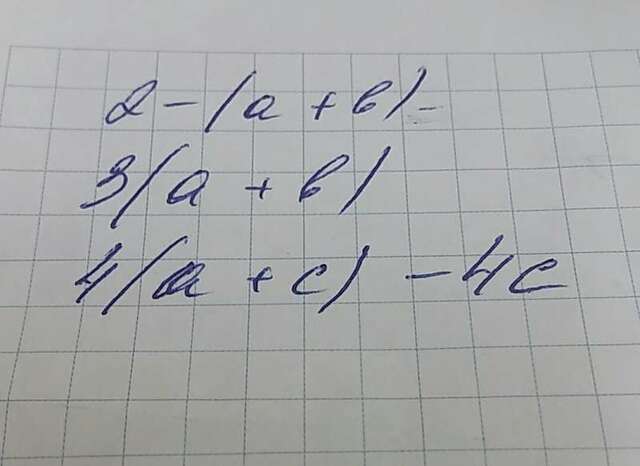 2 - (a + b) -
3(a + b)
4(a + c) - 4c